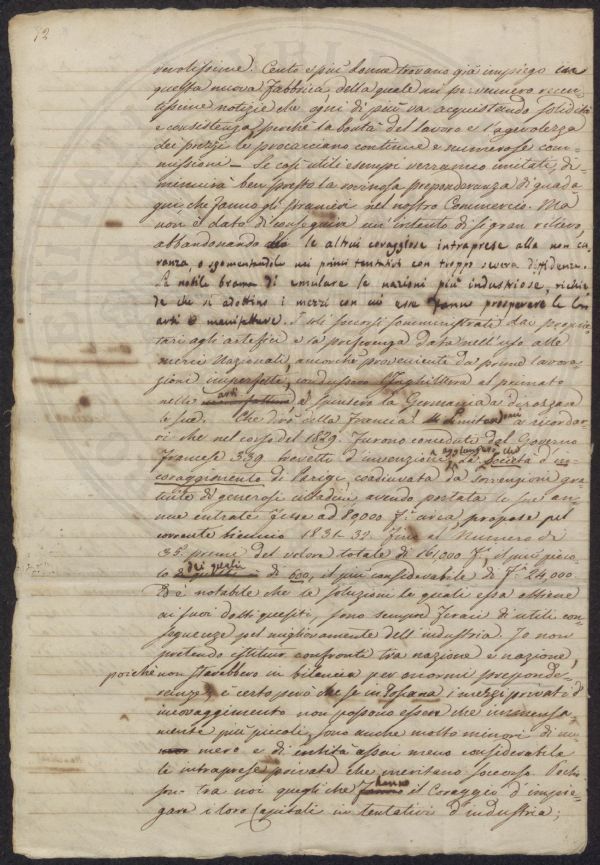 12
Cento e più donne trovano già impiego in
questa nuova Fabbrica, della quale mi pervennero recen-
tissime notizie che ogni dì più va acquistando solidità
e consistenza, perchè la bontà del lavoro e l'agevolezza
dei prezzi le procacciano continue e numerose com-
missioni — Se così utili esempi verranno imitati, di-
minuirà ben presto la rovinosa preponderanza di guada
gni che fanno gli stranieri nel nostro Commercio. Ma
non è dato di conseguire un' intento di sì gran rilievo,
abbandonando le altrui coraggiose intraprese alla non cu-
ranza, o sgomentandole nei primi tentativi con troppo severa diffidenza.
La nobile brama di emulare le nazioni più industriose, richie
de che si adottino i mezzi con cui esse fanno prosperare le loro
arti e manifatture. I soli soccorsi somministrati dai proprie
tari agli artefici e la preferenza data nell'uso alle
merci Nazionali, ancorchè provenienti da prime lavora-
zioni imperfette, condussero l'Inghilterra al primato
nelle arti e spinsero la Germania a dirozzare
le sue. Che dirò della Francia! Mi limiterò a ricordar
vi che nel corso del 1829. furono concedute dal Governo
Francese 339. brevetti d'invenzione, aggiungerò che la Società d'in-
coraggimento di Parigi, coadiuvata da sovvenzioni gra
tuite di generosi cittadini avendo portata le sue an-
nue entrate fisse ad 89000 F. circa, propose pel
corrente biennio 1831-32. fino al Numero di
35. premi del valore totale di 161,000 F., il più picco-
lo dei quali di 600, il più considerabile di F. 24,000.
Ed è notabile che le soluzioni le quali essa ottiene
ai suoi dotti quesiti, sono sempre feraci di utili con-
seguenze pel miglioramento dell'industria. Io non
pretendo istituir confronti tra nazione e nazione,
poichè non starebbero in bilancia per enormi sproponde-
ranze, è certo però che se in Toscana i mezzi privati d'
incoraggimento non possono esser che immensa-
mente più piccoli, sono anche molto minori di nu-
mero e di entità assai meno considerabile
le intraprese private che meritano soccorso. Pochi
son tra noi quegli che hanno il coraggio d'impie-
gare i loro Capitali in tentativi d'industria;